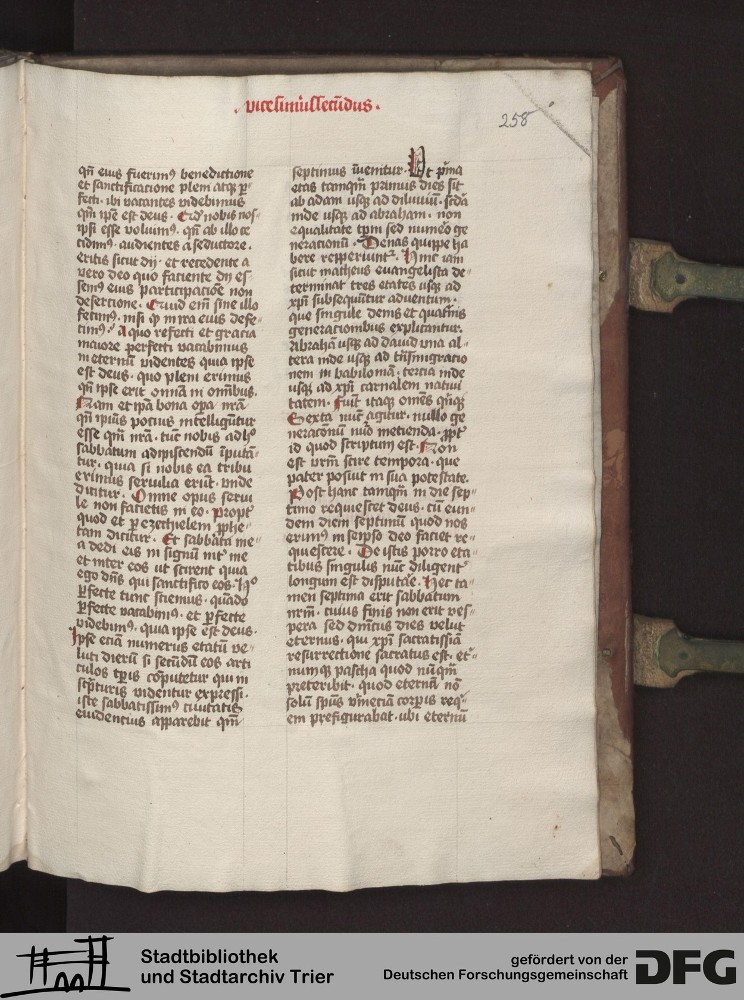 .vicesimusſecūdus.
258
qn̄ eius fuerimꝰ benedictione
et sanctificatione pleni atqꝫ ꝑ-
fecti. ibi vacantes videbimus
qm̄ ipse est deus. Qd̓ nobis nos-
ipsi esse voluimꝰ. qn̄ ab illo ce
cidimꝰ. audientes a seductore.
eritis sicut dij. et recedente a
vero deo quo faciente dij es-
semꝰ eius participacione non
desertione. Quid em̄ sine illo
fecimꝰ. nisi qꝫ in ira eius defe-
cimꝰ. A quo refecti et gracia
maiore perfecti vacabimus
in eternū videntes quia ipse
est deus. quo pleni erimus
qn̄ ipse erit omnia in omībus.
Nam et ip̄a bona opa nr̄a
qn̄ ipiꝰ pocius intelligūtur
esse qm̄ nr̄a. tūc nobis ad hoͨ
sabbatum adipiscendū iputā-
tur. quia si nobis ea tribu
erimus servilia erūt. vnde
dicitur. Omne opus servi
le non facietis in eo. Propt̓
quod et ꝑ ezechielem ꝓphe-
tam dicitur. Et sabbata me-
a dedi eis in signū int̓ me
et inter eos ut scirent quia
ego dn̄s qui sanctifico eos. Hoͨ
ꝑfecte tunc sciemus. quādo
ꝑfecte vacabimꝰ. et ꝑfecte
videbimꝰ. quia ipse est deus.
Ipse eciā numerus etatū ve-
luti dierū si secūdū eos arti
culos tꝑis cōputetur qui in
scpturis videntur expressi.
iste sabbatissimꝰ ciuitatis
euidencius apparebit qm̄
septimus īuenitur. Vt pͥma
etas tamqm̄ primus dies sit
ab adam usqꝫ ad diluuiū. scda
inde usqꝫ ad abraham. non
equalitate tꝑm sed numeͦo ge
nerationū. Denas quippe ha
bere repperiunt̓. Hinc iam
sicut matheus euangelista de-
terminat tres etates usqꝫ ad
xp̄i subsequūtur aduentum.
que singule denis et quatͦnis
generationibus explicantur.
Abrahā usqꝫ ad dauid vna al-
tera inde usqꝫ ad trāsmigratio
nem in babiloniā. tercia inde
usqꝫ ad xp̄i carnalem natiui
tatem. Fiūt itaqꝫ omēs qͥnqꝫ
Sexta nūc agitur. nullo ge
neraconū nūo metienda. ꝓpt̓
id quod scriptum est. Non
est vrm̄ scire tempora. que
pater posiut in sua potestate.
Post hanc tamqm̄ in die sep-
timo requiescet deus. cū eun-
dem diem septimū quod nos
erimꝰ in seipso deo faciet re-
quiescere. De istis porro eta-
tibus singulis nūc diligent̓
longum est disputāe. Hec ta-
men septima erit sabbatum
nrm̄. cuius finis non erit ves-
pera sed dm̄cus dies velut
eternus. qui xp̄i sacratissīa
resurrectione sacratus est. et̓-
numqꝫ pascha quod nūqm̄
preteribit. quod eternā nō
solū spūs vmeciā corꝑis reqͥ-
em prefigurabat. ubi eternū
Stadtbibliothek
und Stadtarchiv Trier
gefördert von der
Deutschen Forschungsgemeinschaft
DFG